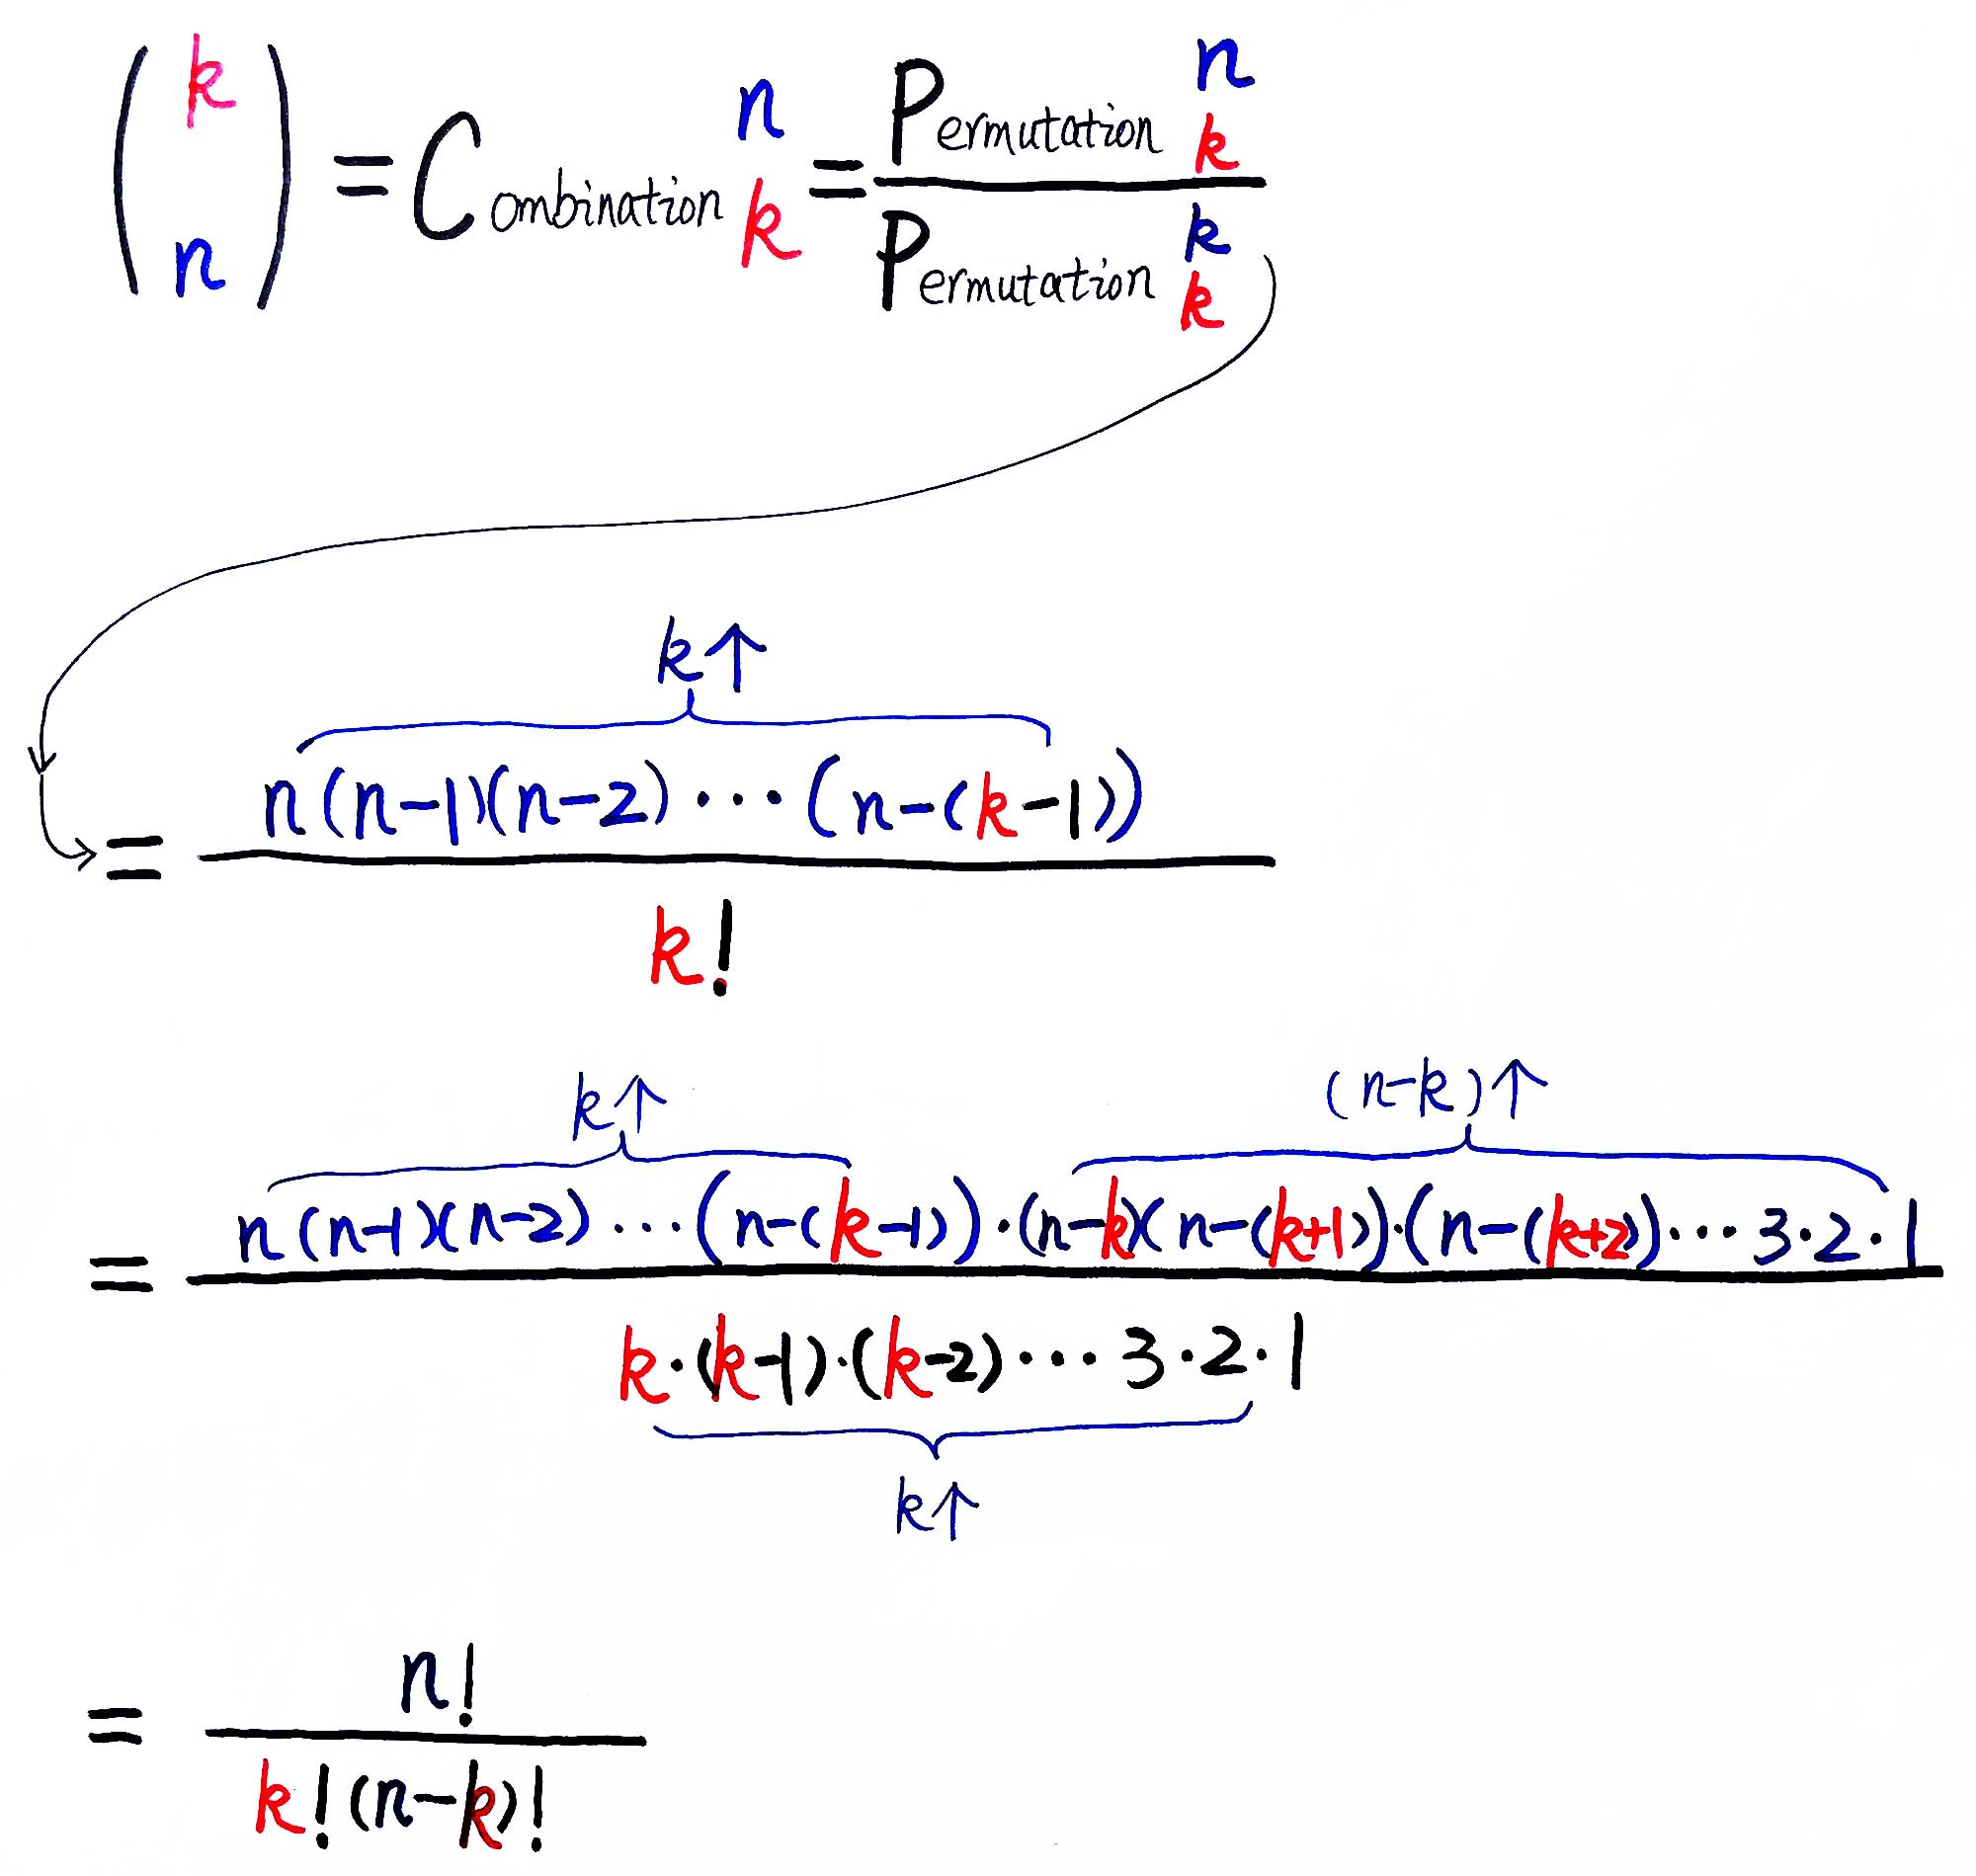 (k n) = Combination n k = Permutation n k / Permutation k k
k↑
= n(n-1)(n-2)···(n-(k-1)) / k!
k↑ (n-k)↑
= n(n-1)(n-2)···(n-(k-1))·(n-k)(n-(k+1))·(n-(k+2))···3·2·1 / k·(k-1)·(k-2)···3·2·1
k↑
= n! / k!(n-k)!